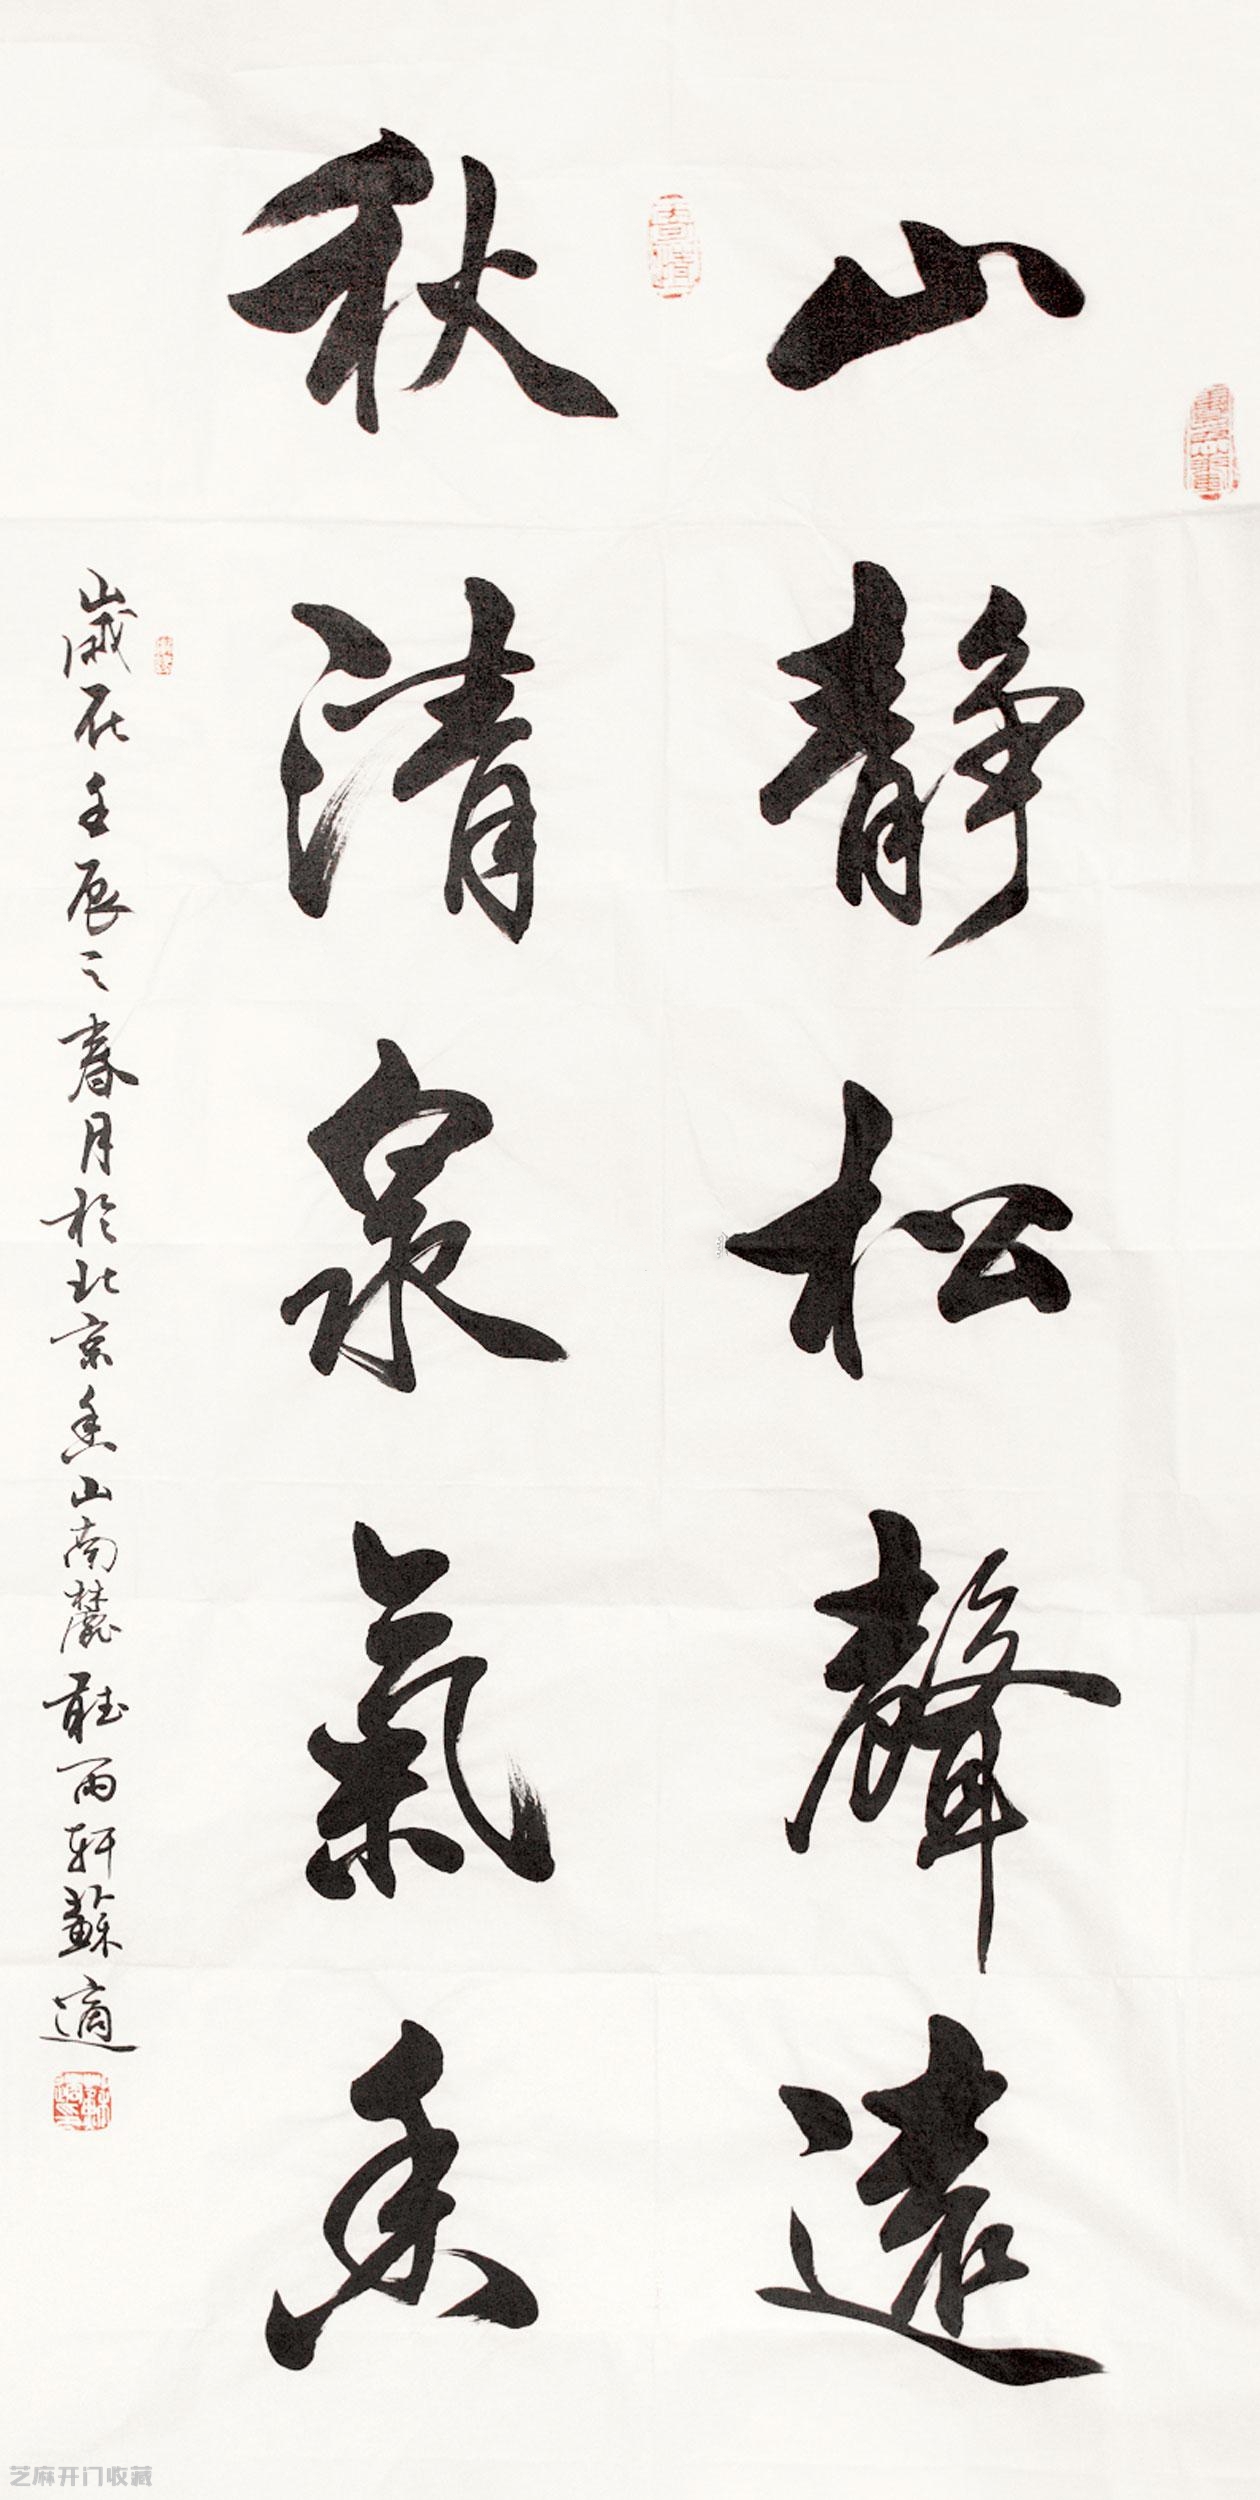 山靜松聲遠
秋清泉氣香
歲在壬辰之春月於北京香山南麓聽雨軒蘇適
芝麻开门收藏